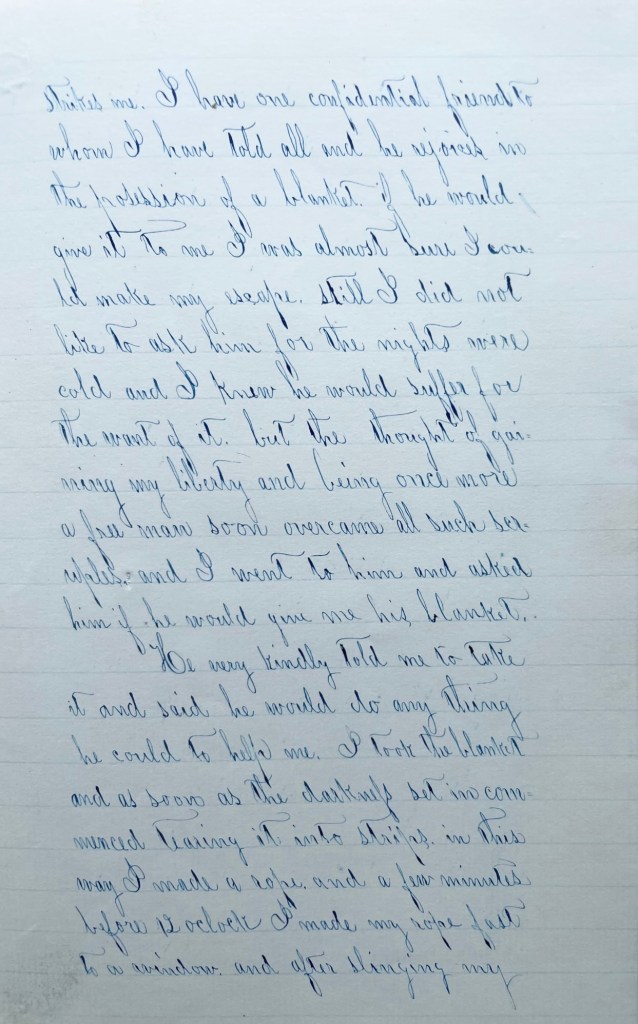 strikes me. I have one confidential friend to
whom I have told all and he rejoices in
the possession of a blanket. if he would
give it to me I was almost sure I cou=
ld make my escape. still I did not
like to ask him for the nights were
cold and I knew he would suffer for
the want of it. but the thought of gai=
ning my liberty and being once more
a free man soon overcame all such scr=
uples. and I went to him and asked
him if he would give me his blanket.
He very kindly told me to take
it and said he would do any thing
he could to help me. I took the blanket
and as soon as the darkness set in com=
menced tearing it into strips. in this
way I made a rope. and a few minutes
before 12 oclock I made my rope fast
to a window. and after slinging my